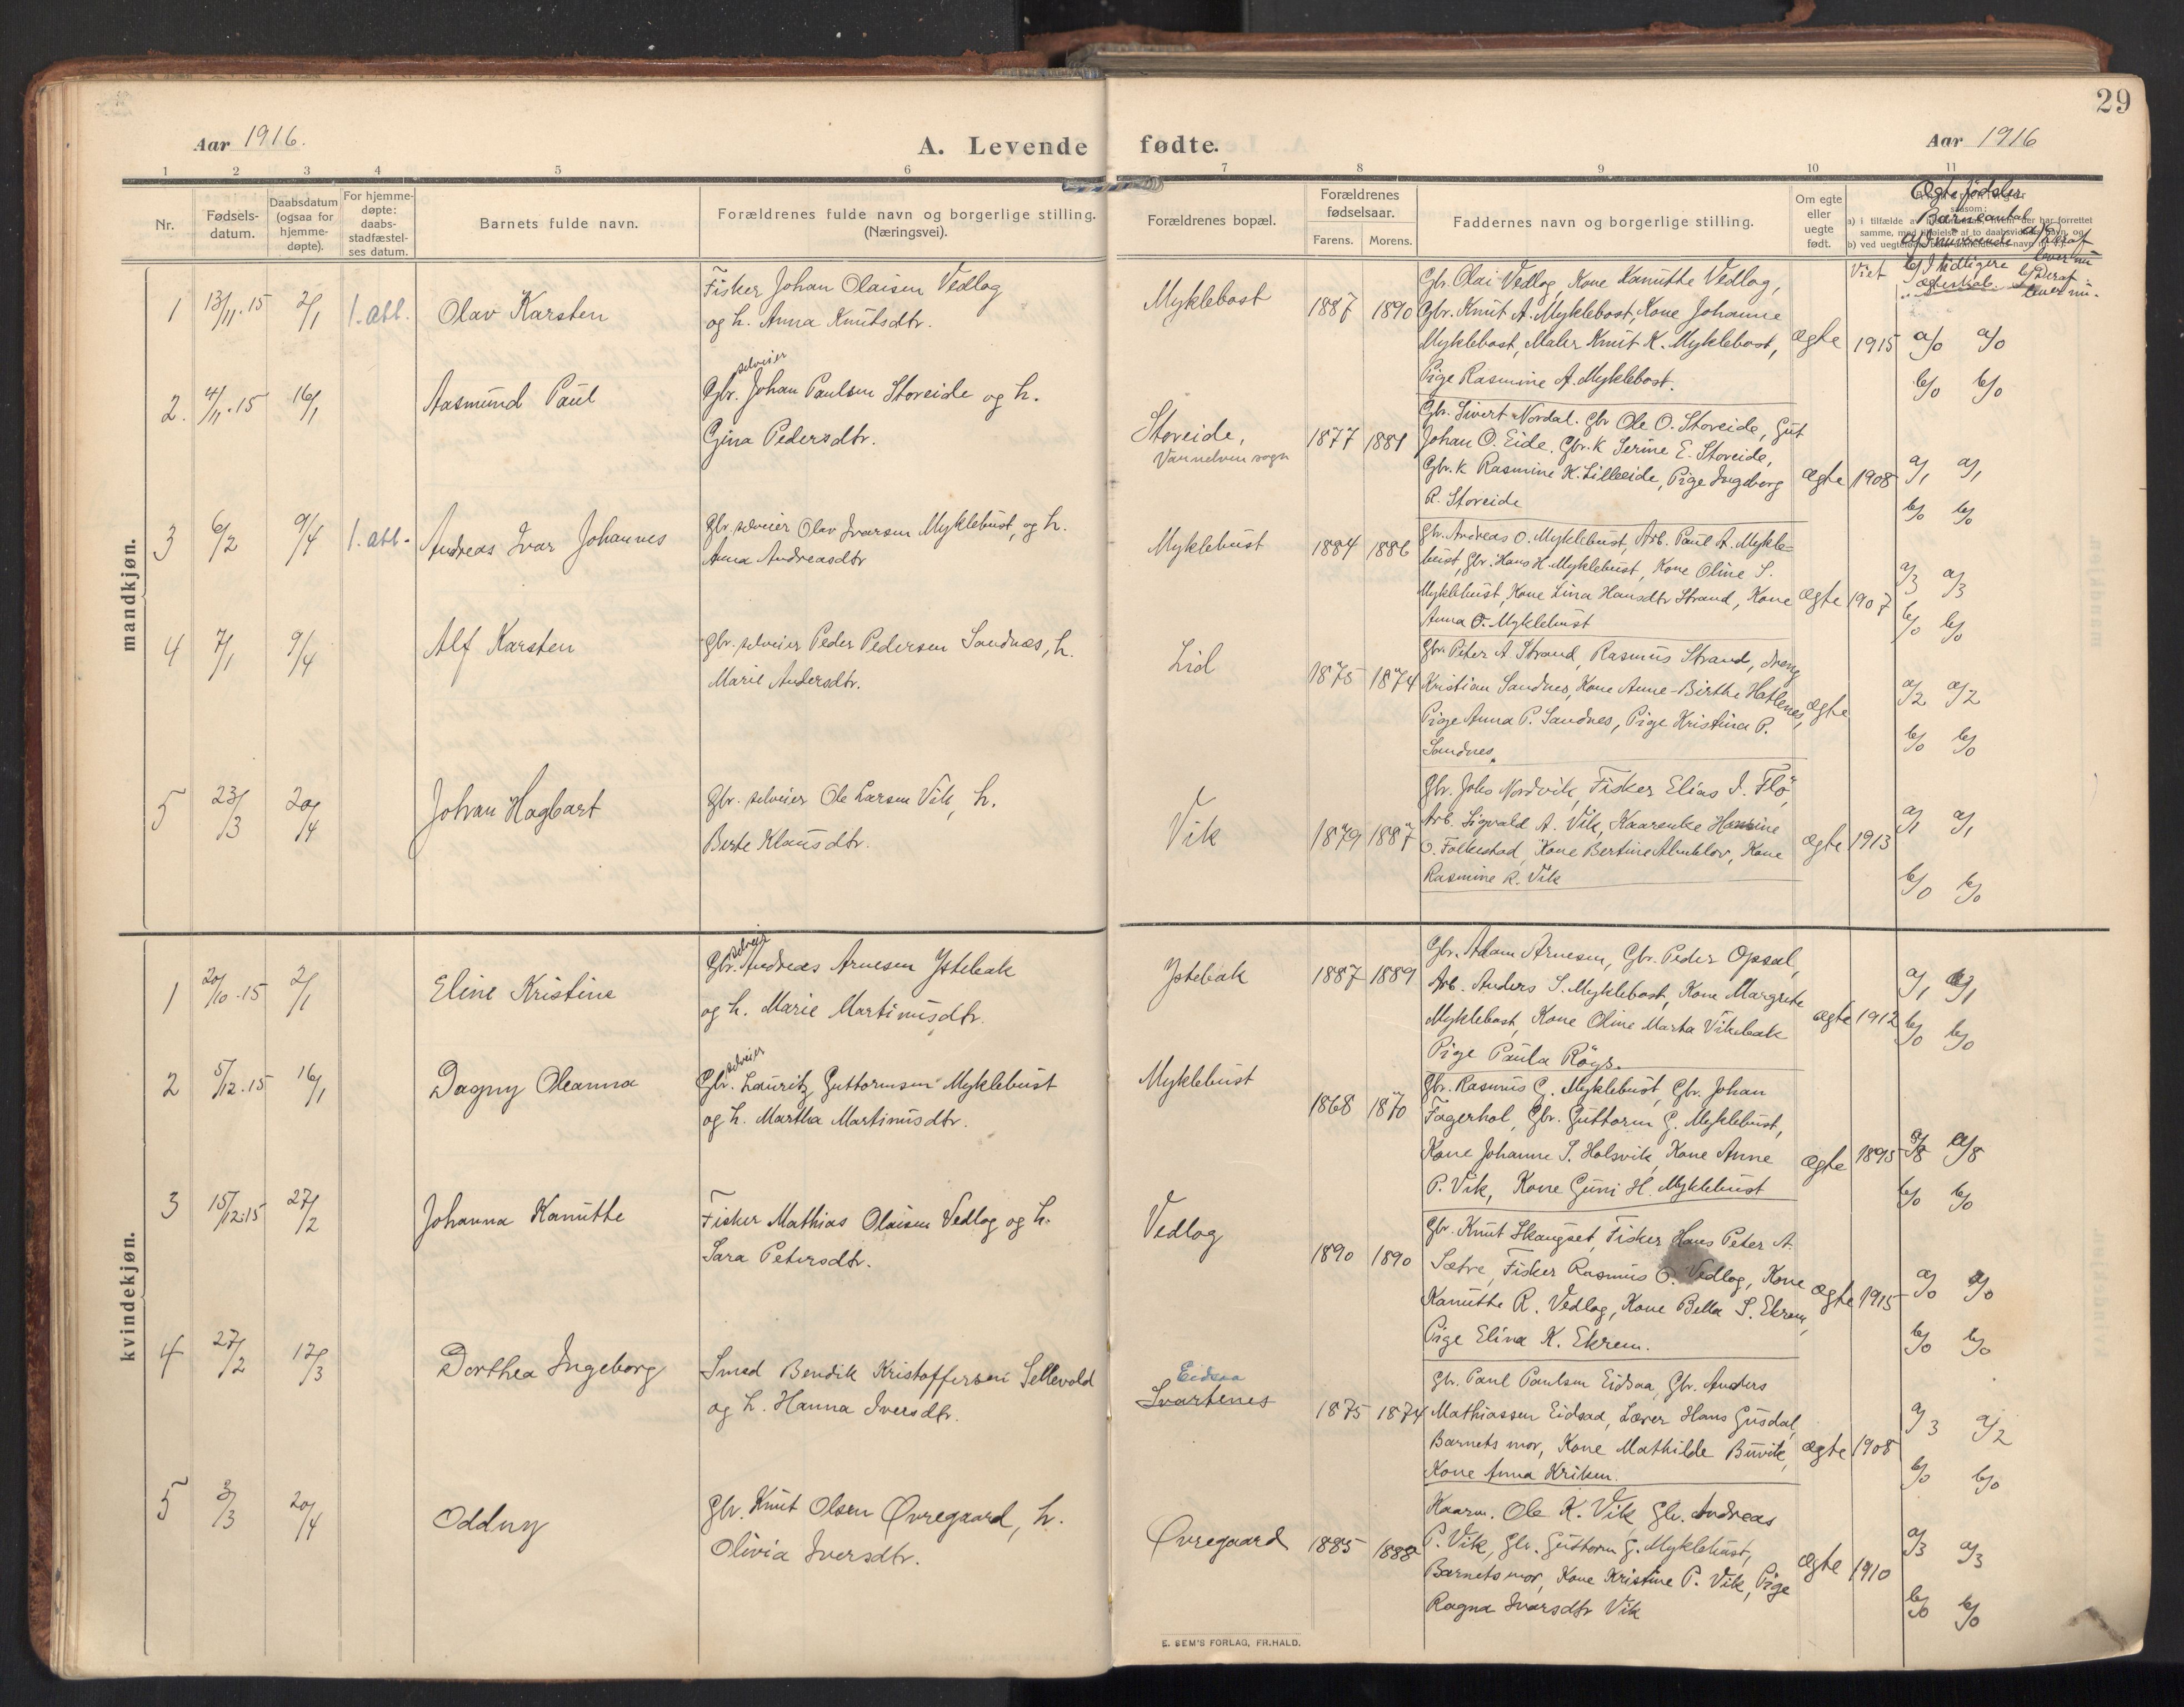 29
Aar 1916.
A. Levende fødte.
Aar 1916
1 2 3 4 5 6 7 8 9 10 11
Nr.
Fødsels-
datum.
Daabsdatum
(ogsaa for
hjemme-
døpte).
For hjemme-
døpte:
daabs-
stadfæstel-
ses datum.
Barnets fulde navn.
Forældrenes fulde navn og borgerlige stilling.
(Næringsvei).
Forældrenes bopæl.
Forældrenes
fødselsaar.
Farens. Morens.
Faddernes navn og borgerlige stilling.
Om egte
eller
uegte
født.
Ægte fødsler
Barneantal
Viet
mandkjøn.
1 13/11.15 2/1 1. att. Olav Karsten
Fisker Johan Olaisen Vedlog
og h. Anna Knutsdtr.
Myklebost 1887 1890
Gbr. Olai Vedlog, Kone Kanutthe Vedlog,
Gbr. Knut A. Myklebost, Kone Johanne
Myklebost, Maler Knut K. Myklebost,
Pige Rasmine A. Myklebost.
Ægte 1915 a/0 a/0
b/0 b/0
2. 4/11.15 16/1 Aasmund Paul
selveier
Gbr. Johan Paulsen Storeide og h.
Gina Pedersdtr.
Storeide,
Vannelven sogn
1877 1881
Gbr. Sivert Nordal. Gbr Ole O. Storeide, Gut
Johan O. Eide. Gbr. k Serine E. Storeide,
Gbr. k Rasmine K. Lilleeide, Pige Ingeborg
R. Storeide
Ægte 1908 a/1 a/1
b/0 b/0
3 6/2 9/4 1. att. Andreas Ivar Johannes
Gbr. selveier Olav Ivarsen Myklebust, og h.
Anna Andreasdtr
Myklebust 1884 1886
Gbr. Andreas O. Myklebust, Arb. Paul A. Mykle-
bust, Gbr. Hans H. Myklebust, Kone Oline S.
Myklebust, Kone Lina Hansdtr Strand, Kone
Anna O. Myklebust
Ægte 1907 a/3 a/3
b/0 b/0
4 7/1 9/4 Alf Karsten
Gbr. selveier Peder Pedersen Sandnæs, h.
Marie Andersdtr.
Lid 1875 1874
Gbr. Peter A Strand, Rasmus Strand, dreng
Kristian Sandnes, Kone Anne-Birthe Hatlenes,
Pige Anna P. Sandnes, Pige Kristina P.
Sandnes.
Ægte a/2 a/2
b/0 b/0
5 23/3 20/4 Johan Hagbart
Gbr. selveier Ole Larsen Vik, h.
Berte Klausdtr.
Vik 1879 1887
Gbr. Johs Nordvik, Fisker Elias I. Flø,
Arb. Sigvald A. Vik, Kaarenke Hansine
O. Folkestad, Kone Bertine Almklov, Kone
Rasmine R. Vik
Ægte 1913 a/1 a/1
b/0 b/0
kvindekjøn.
1 20/10.15 2/1 Eline Kristine
selveier
Gbr. Andreas Arnesen Ystebak
og h. Marie Martinusdtr.
Ystebak 1887 1889
Gbr. Adam Arnesen, Gbr. Peder Opsal,
Arb. Anders S. Myklebost, Kone Margrete
Myklebost, Kone Oline Marta Vikebak
Pige Paula Røys.
Ægte 1912 a/1 a/1
b/0 b/0
2 5/12.15 16/1 Dagny Oleanna
selveier
Gbr. Lauritz Guttormsen Myklebust
og h. Martha Martinusdtr.
Myklebust 1868 1870
Gbr. Rasmus G. Myklebust, Gbr. Johan
Fagerhol, Gbr. Guttorm G. Myklebust,
Kone Johanne S. Holsvik, Kone Anne
P. Vik, Kone Guni H. Myklebust
Ægte 1895 a/8 a/8
b/0 b/0
3 15/12.15 27/2 Johanna Kanutthe
Fisker Mathias Olaisen Vedlog og h.
Sara Petersdtr.
Vedlog 1890 1890
Gbr. Knut Skaugset, Fisker Hans Peter A.
Sætre, Fisker Rasmus O. Vedlog, Kone
Kanutthe R. Vedlog, Kone Bella S. Ekrem,
Pige Elina K. Ekrem.
Ægte 1915 a/0 a/0
b/0 b/0
4 27/2 12/3 Dorthea Ingeborg
Smed Bendik Kristoffersen Sellevold
og h. Hanna Iversdtr.
Eidsaa
Svartenes
1875 1874
Gbr. Paul Paulsen Eidsaa, Gbr. Anders
Mathiassen Eidsaa, Lærer Hans Gusdal,
Barnets mor, Kone Mathilde Buvik,
Kone Anna Kriken.
Ægte 1908 a/3 a/2
b/0 b/0
5 3/3 20/4 Oddny
Gbr. Knut Olsen Øvregaard, h.
Olivia Iversdtr.
Øvregaard 1885 1888
Kaarm. Ole K. Vik, Gbr. Andreas
P. Vik, Gbr. Guttorm G. Myklebust,
Barnets mor, Kone Kristine P. Vik, Pige
Ragna Ivarsdtr Vik
Ægte 1910 a/3 a/3
b/0 b/0
E. SEM'S FORLAG, FR.HALD.